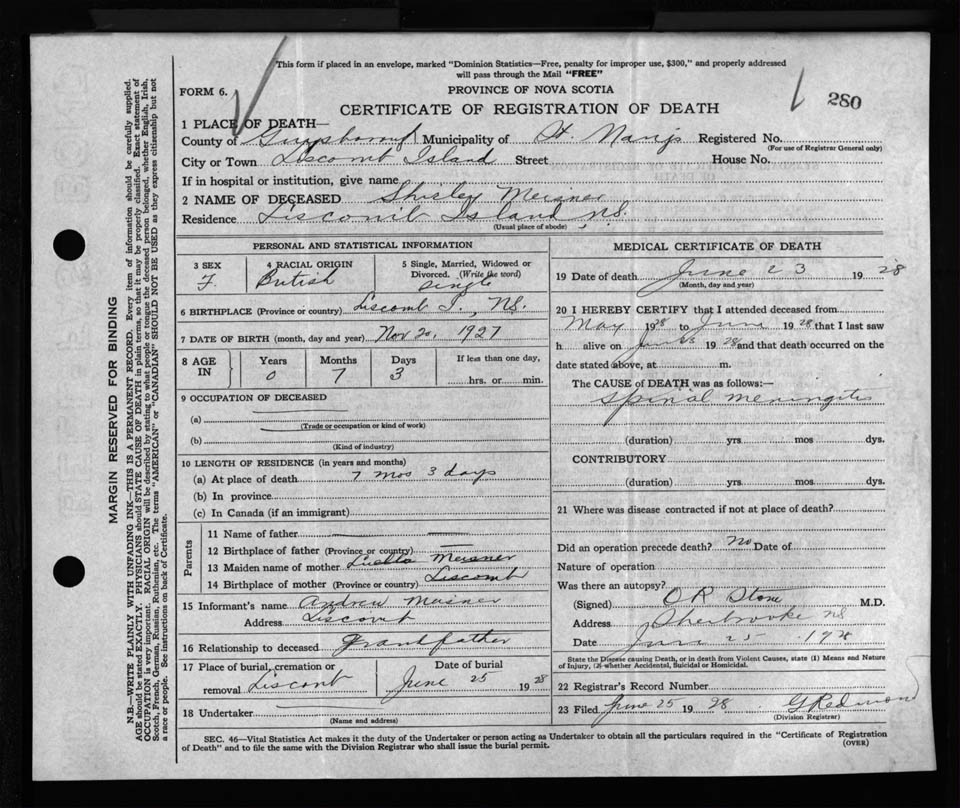 This form if placed in an envelope, marked "Dominion Statistics—Free, penalty for improper use, $300," and properly addressed
will pass through the Mail "FREE"
FORM 6.
PROVINCE OF NOVA SCOTIA
280
CERTIFICATE OF REGISTRATION OF DEATH
1 PLACE OF DEATH—
County of Guysborough Municipality of St. Marys Registered No.
(For use of Registrar General only)
City or Town Liscomb Island Street House No.
If in hospital or institution, give name
2 NAME OF DECEASED Shirley Meisner
Residence Liscomb Island N.S.
(Usual place of abode)
PERSONAL AND STATISTICAL INFORMATION
3 SEX 4 RACIAL ORIGIN 5 Single, Married, Widowed or
Divorced. (Write the word)
F. British single
6 BIRTHPLACE (Province or country) Liscomb I., N.S.
7 DATE OF BIRTH (month, day and year) Nov 20, 1927
8 AGE IN Years Months Days If less than one day,
0 7 3 hrs. or min.
9 OCCUPATION OF DECEASED
(a)
(Trade or occupation or kind of work)
(b)
(Kind of industry)
10 LENGTH OF RESIDENCE (in years and months)
(a) At place of death 7 mos 3 days
(b) In province
(c) In Canada (if an immigrant)
Parents
11 Name of father
12 Birthplace of father (Province or country)
13 Maiden name of mother Luella Meisner
14 Birthplace of mother (Province or country) Liscomb
15 Informant's name Andrew Meisner
Address Liscomb
16 Relationship to deceased grandfather
17 Place of burial, cremation or Date of burial
removal Liscomb June 25 1928
18 Undertaker
(Name and address)
MEDICAL CERTIFICATE OF DEATH
19 Date of death June 23 1928
(Month, day and year)
20 I HEREBY CERTIFY that I attended deceased from
May 1928 to June 1928 that I last saw
h alive on 1928 and that death occurred on the
date stated above, at m.
The CAUSE of DEATH was as follows:—
Spinal meningitis
(duration) yrs mos dys.
CONTRIBUTORY
(duration) yrs mos dys.
21 Where was disease contracted if not at place of death?
Did an operation precede death? No Date of
Nature of operation
Was there an autopsy?
(Signed) O R Stone M.D.
Address Sherbrooke NS
Date June 25 1928
State the Disease causing Death, or in death from Violent Causes, state (1) Means and Nature
of Injury, (2) whether Accidental, Suicidal or Homicidal.
22 Registrar's Record Number
23 Filed June 25 1928 G Redmond
(Division Registrar)
SEC. 46—Vital Statistics Act makes it the duty of the Undertaker or person acting as Undertaker to obtain all the particulars required in the "Certificate of Registration
of Death" and to file the same with the Division Registrar who shall issue the burial permit.
(OVER)
MARGIN RESERVED FOR BINDING
N.B.—WRITE PLAINLY WITH UNFADING INK—THIS IS A PERMANENT RECORD. Every item of information should be carefully supplied.
AGE should be stated EXACTLY. PHYSICIANS should STATE CAUSE OF DEATH in plain terms, so that it may be properly classified. Exact statement of
OCCUPATION is very important. RACIAL ORIGIN will be described by stating to what people or tongue the deceased person belonged, whether English, Irish,
Scotch, French, German, Russian, Ruthenian, etc. The terms "AMERICAN" or "CANADIAN" SHOULD NOT BE USED as they express citizenship but not
a race or people. See instructions on back of Certificate.